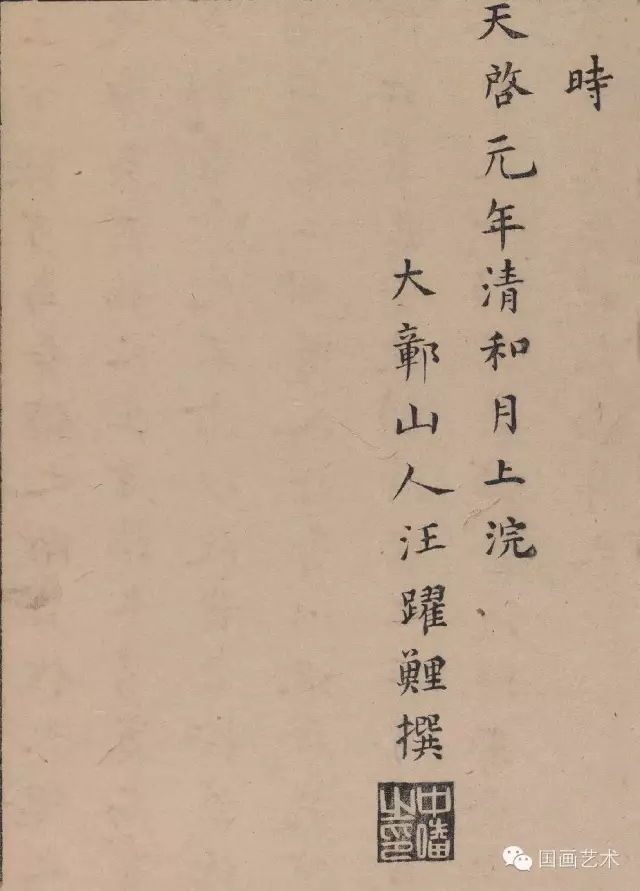 時
天啓元年清和月上浣
大鄣山人汪躍鯉撰
国画艺术